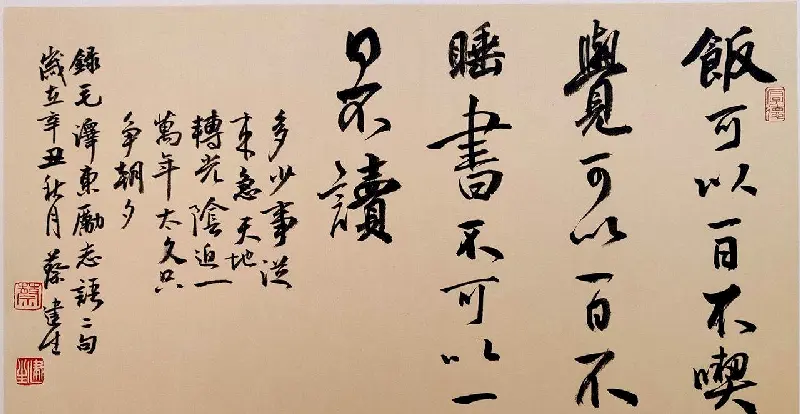 飯可以一日不喫
覺可以一日不
睡書不可以一
日不讀
多少事從
来急天地
轉光陰迫一
萬年太久只
争朝夕
錄毛澤東勵志語二句
歲在辛丑秋月蔡建生